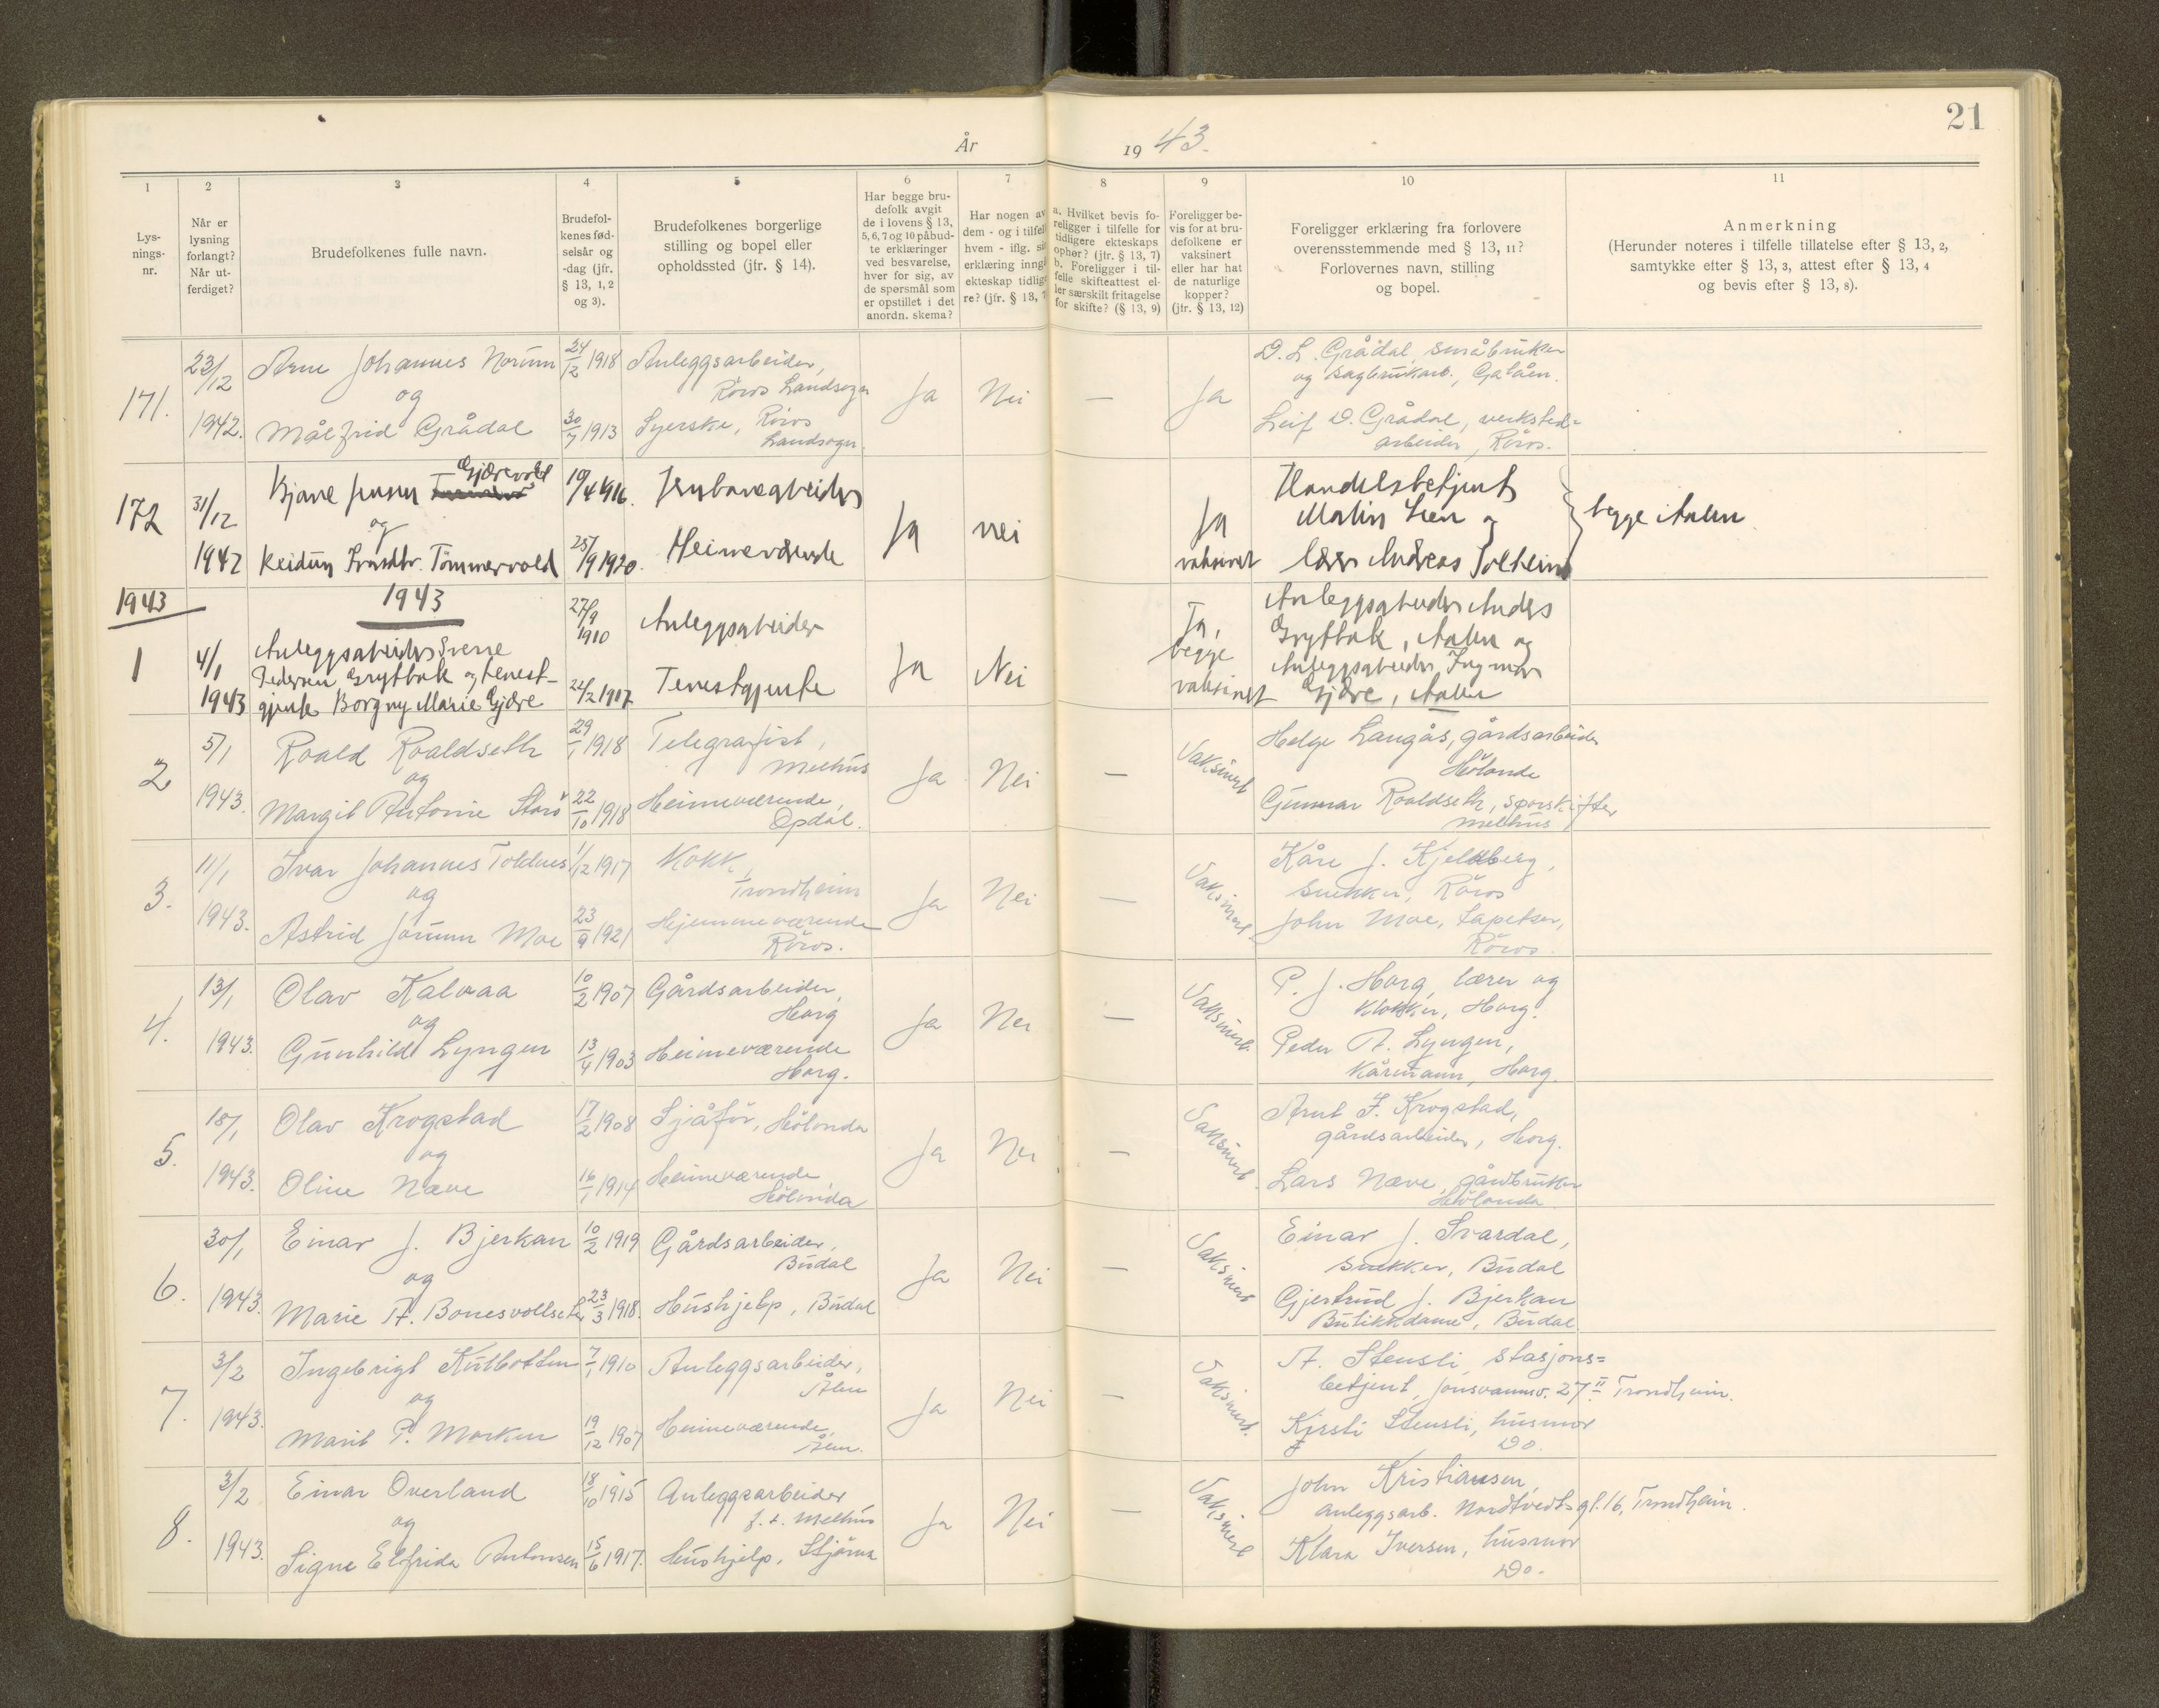 21
År 19 43.
1
2
3
4
5
6
7
8
9
10
11
Lys-
nings-
nr.
Når er
lysning
forlangt?
Når ut-
ferdiget?
Brudefolkenes fulle navn.
Brudefol-
kenes fød-
selsår og
-dag (jfr.
§ 13, 1, 2
og 3).
Brudefolkenes borgerlige
stilling og bopel eller
opholdssted (jfr. § 14).
Har begge bru-
defolk avgit
de i lovens § 13,
5, 6, 7 og 10 påbud-
te erklæringer
ved besvarelse,
hver for sig, av
de spørsmål som
er opstillet i det
anordn. skema?
Har nogen av
dem - og i tilfel
hvem - iflg. si
erklæring inngå
ekteskap tidlig
re? (jfr. § 13, 7
a. Hvilket bevis fo-
religger i tilfelle for
tidligere ekteskaps
ophør? (jfr. § 13, 7)
b. Foreligger i til-
felle skifteattest el-
ler særskilt fritagelse
for skifte? (§ 13, 9)
Foreligger be-
vis for at bru-
defolkene er
vaksinert
eller har hat
de naturlige
kopper?
(jfr. § 13, 12)
Foreligger erklæring fra forlovere
overensstemmende med § 13, 11?
Forlovernes navn, stilling
og bopel.
Anmerkning
(Herunder noteres i tilfelle tillatelse efter § 13, 2,
samtykke efter § 13, 3, attest efter § 13, 4
og bevis efter § 13, 8).
171.
23/12
1942.
Arne Johannes Norum
og
Målfrid Grådal
24/2 1918
30/7 1913
Anleggsarbeider,
Røros Landsogn
Syerske, Røros
Landsogn.
Ja
Nei
—
Ja
D. L. Grådal, småbruker
og sagbrukarb., Galåen.
Leif D. Grådal, verksted=
arbeider, Røros.
172
31/12
1942
Bjarne Jensen Gjærevold
og
Reidun Tømmervold
19/4 1916.
25/9 1920.
Jernbanearbeider
Heimeværende
Ja
nei
Ja
vaksinert
Handelsbetjent
Martin Lien og
Andreas Solheim
begge i Aalen
1943
1943
1
4/1
1943
Anleggsarbeider Sverre
Pedersen Grytbak og tenest-
gjente Borgny Marie Gjære
27/9
1910
22/2 1917
Anleggsarbeider
Tenestgjente
Ja
Nei
Ja,
begge
vaksinert
Anleggsarbeider Anders
Grytbak, Aalen og
Anleggsarbeider Ingmar
Gjære, Aalen
2
5/1
1943.
Roald Roaldseth
og
Margit Antonie Storø
29/1 1918
22/10 1918
Telegrafist,
Melhus
Heimeværende,
Opdal.
Ja
Nei
—
Vaksinert
Helge Langås, gårdsarbeider
Hölonda
Gunnar Roaldseth, sporskifter
Melhus
3.
11/1
1943.
Ivar Johannes Toldnes
og
Astrid Jorunn Moe
1/2 1917
23/9 1921
Kokk,
Trondheim
Hjemmeværende
Røros.
Ja
Nei
—
Vaksinert.
Kåre J. Kjellberg,
snekker, Röros
John Moe, tapetser,
Röros.
4.
13/1
1943.
Olav Kalvaa
og
Gunhild Lyngen
10/2 1907
13/4 1903
Gårdsarbeider,
Horg
Heimeværende
Horg.
Ja
Nei
—
Vaksinert.
P. J. Horg, lærer og
klokker, Horg.
Peder A. Lyngen,
Kårmann, Horg.
5.
18/1
1943.
Olav Krogstad
og
Oline Næve
17/2 1908
16/1 1914
Sjåför, Hölonda
Heimeværende
Hölonda
Ja
Nei
—
Vaksinert.
Arnt F. Krogstad,
gårdsarbeider, Horg.
Lars Næve, gårdbruker
Hölonda
6.
30/1
1943.
Einar J. Bjerkan
og
Marie A. Bonesvollseter
10/2 1919
23/3 1918.
Gårdsarbeider,
Budal
Hushjelp, Budal
Ja
Nei
—
Vaksinert
Einar J. Svardal,
snekker, Budal
Gjertrud J. Bjerkan
Butikkdame, Budal
7.
3/2
1943.
Ingebrigt Kulbotten
og
Marit P. Morken
7/1 1910
19/12 1907
Anleggsarbeider,
Ålen
Heimeværende,
Ålen.
Ja
Nei
—
Vaksinert.
A. Stensli, stasjons=
betjent, Jonsvannsv. 27 II Trondheim.
Kirsti Stensli, husmor
Do.
8.
3/2
1943.
Einar Overland
og
Signe Elfrida Antonsen
18/10 1915
15/6 1917.
Anleggsarbeider
f. t. Melhus
Hushjelp, Stjørna
Ja
Nei
—
Vaksinert
John Kristiansen,
anleggsarb. Nordtvedts gt. 16, Trondheim.
Klara Iversen, husmor
Do.